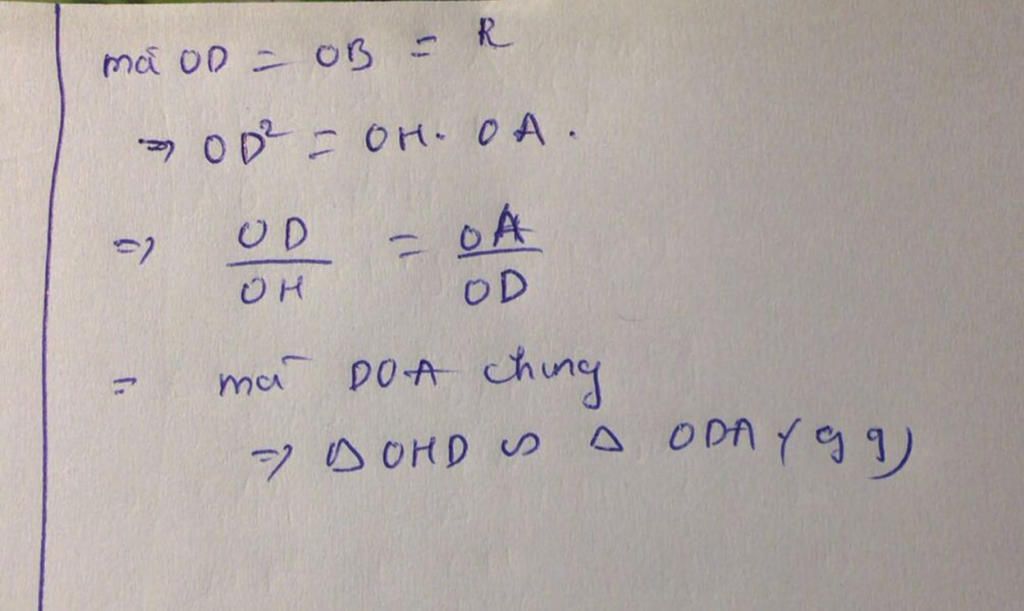 mà OD = OB = R
⇒ OD² = OH. OA.
⇒ OD/OH = OA/OD
= mà DOA chung
⇒ Δ OHD ∽ Δ ODA (g g)